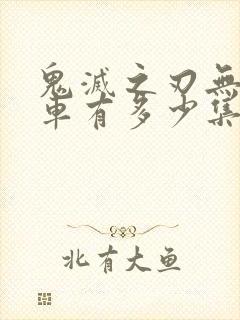 鬼滅之刃無
車有多少集
北有大魚